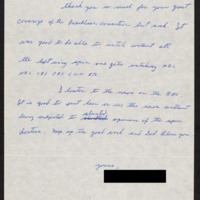 Thank you so much for your great
coverage of the Republican convention last week. It
was good to be able to watch without all
the left wing spin one gets watching ABC
NBC CBS PBS CNN ETC.
I listen to the news on the BBC
It is good to just hear or see the news without
being subjected to slanted opinions of the
Keep up the good work and God bless you
Yours,